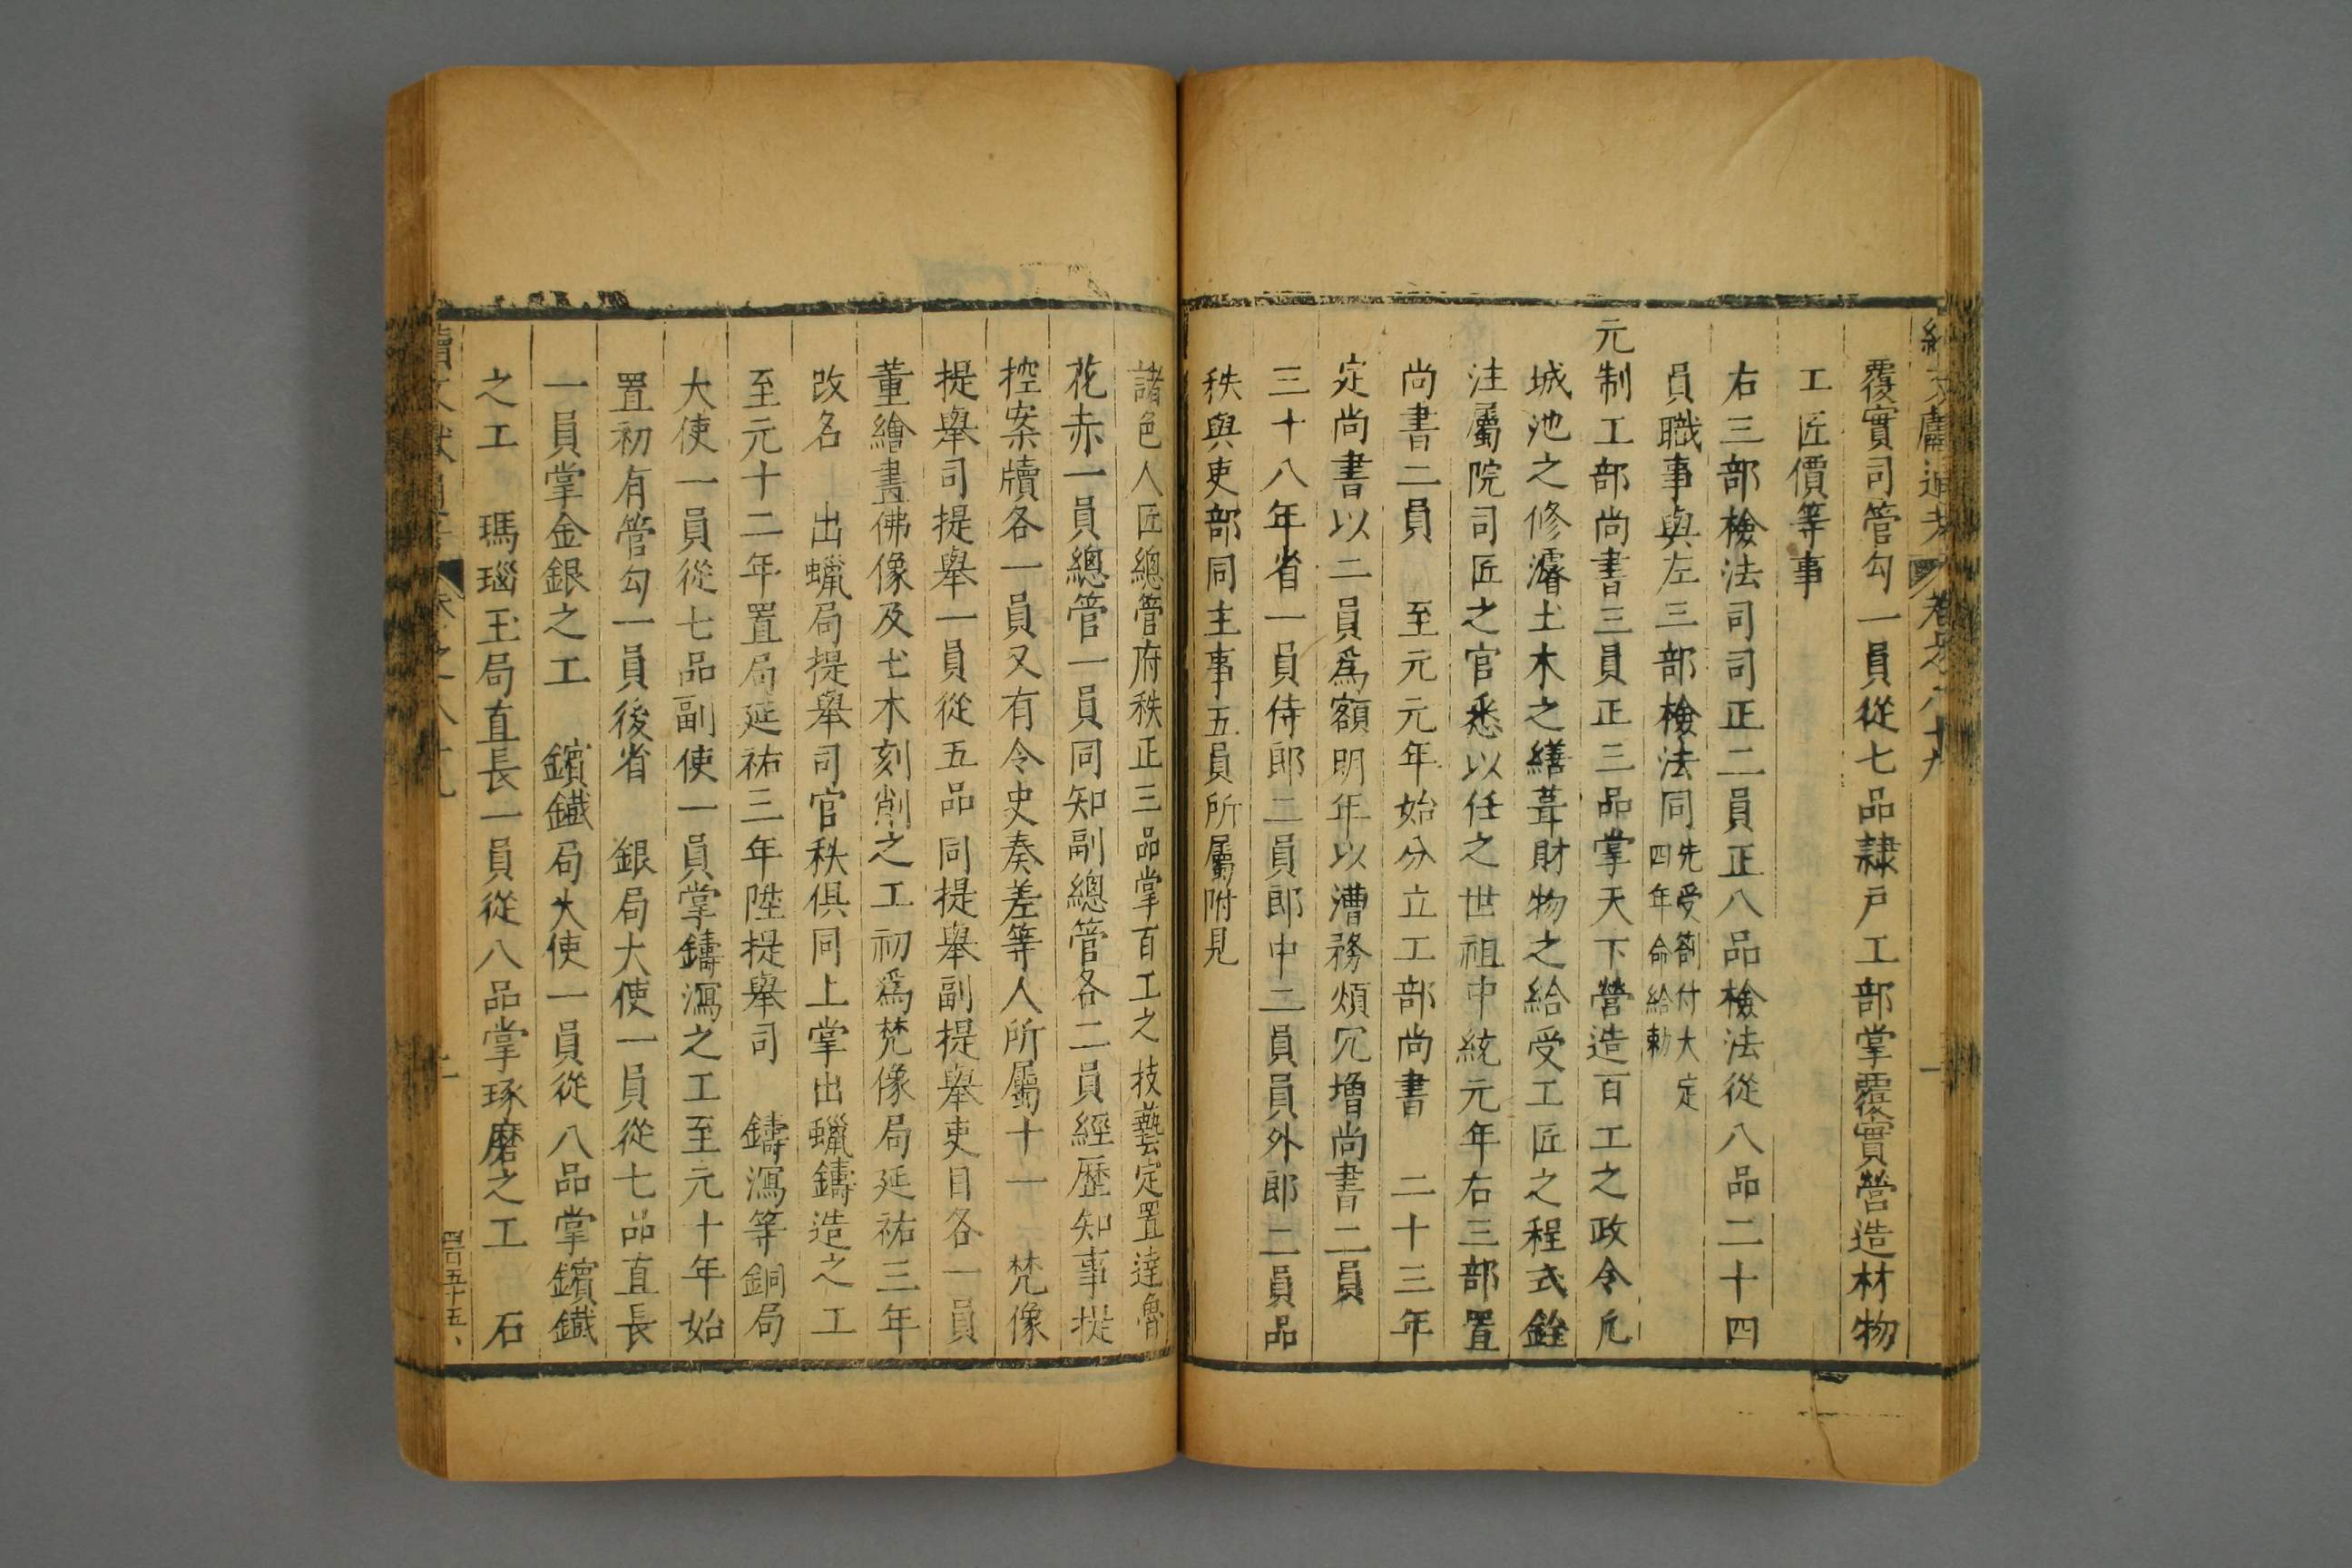 續文獻通考 卷之八十九 一
覆實司管勾一員從七品隷戸工部掌覆實營造材物
工匠價等事
右三部檢法司司正二員正八品檢法從八品二十四
員職事與左三部檢法同先受劄付大定四年命給勅
元制工部尚書三員正三品掌天下營造百工之政令凡
城池之修濬土木之繕葺財物之給受工匠之程式銓
注屬院司匠之官悉以任之世祖中統元年右三部置
尚書二員 至元元年始分立工部尚書 二十三年
定尚書以二員爲額明年以漕務煩冗增尚書二員
三十八年省一員侍郎二員郎中二員員外郎二員品
秩與吏部同主事五員所屬附見
諸色人匠總管府秩正三品掌百工之技藝定置達魯
花赤一員總管一員同知副總管各二員經歷知事提
控案牘各一員又有令史奏差等人所屬十一 梵像
提舉司提舉一員從五品同提舉副提舉吏目各一員
董繪畫佛像及土木刻削之工初爲梵像局延祐三年
改名 出蠟局提舉司官秩俱同上掌出蠟鑄造之工
至元十二年置局延祐三年陞提舉司 鑄瀉等銅局
大使一員從七品副使一員掌鑄瀉之工至元十年始
置初有管勾一員後省 銀局大使一員從七品直長
一員掌金銀之工 鑌鐵局大使一員從八品掌鑌鐵
之工 瑪瑙玉局直長一員從八品掌琢磨之工 石
續文獻通考 卷之八十九 二 四百五十五